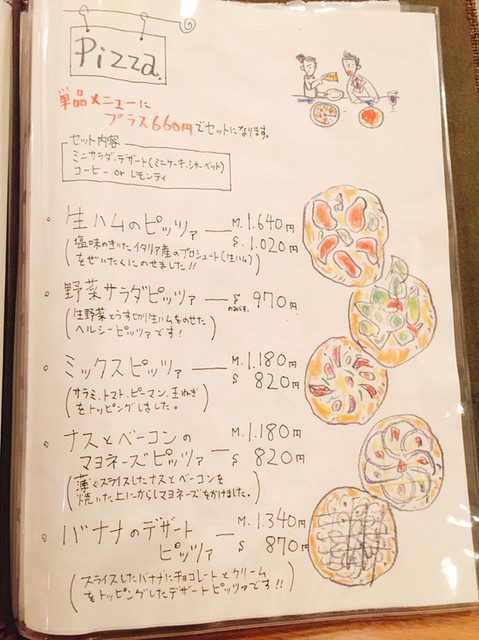 Pizza
単品メニューに
プラス660円でセットになります。
セット内容
ミニサラダ・デザート(ミニケーキ・シャーベット)
コーヒー or レモンティ
生ハムのピッツァ M. 1.640円
S. 1.020円
(塩味のきいたイタリア産のプロシュート(生ハム)
をぜいたくにのせました!!)
野菜サラダピッツァ S 970円
のみです。
(生野菜とうす切り生ハムをのせた
ヘルシーピッツァです!)
ミックスピッツァ M. 1.180円
S 820円
(サラミ、トマト、ピーマン、玉ねぎ
をトッピングしました。)
ナスとベーコンの M. 1.180円
マヨネーズピッツァ S 820円
(薄くスライスしたナスとベーコンを
焼いた上にからしマヨネーズをかけました。)
バナナのデザート M. 1.340円
ピッツァ S 870円
(スライスしたバナナにチョコレートとクリーム
をトッピングしたデザートピッツァです!!)